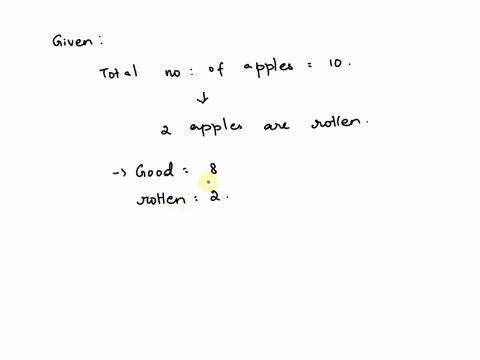 Given :
Total no : of apples = 10 .
↓
2 apples are rotten.
-> Good = 8
rotten = 2 .